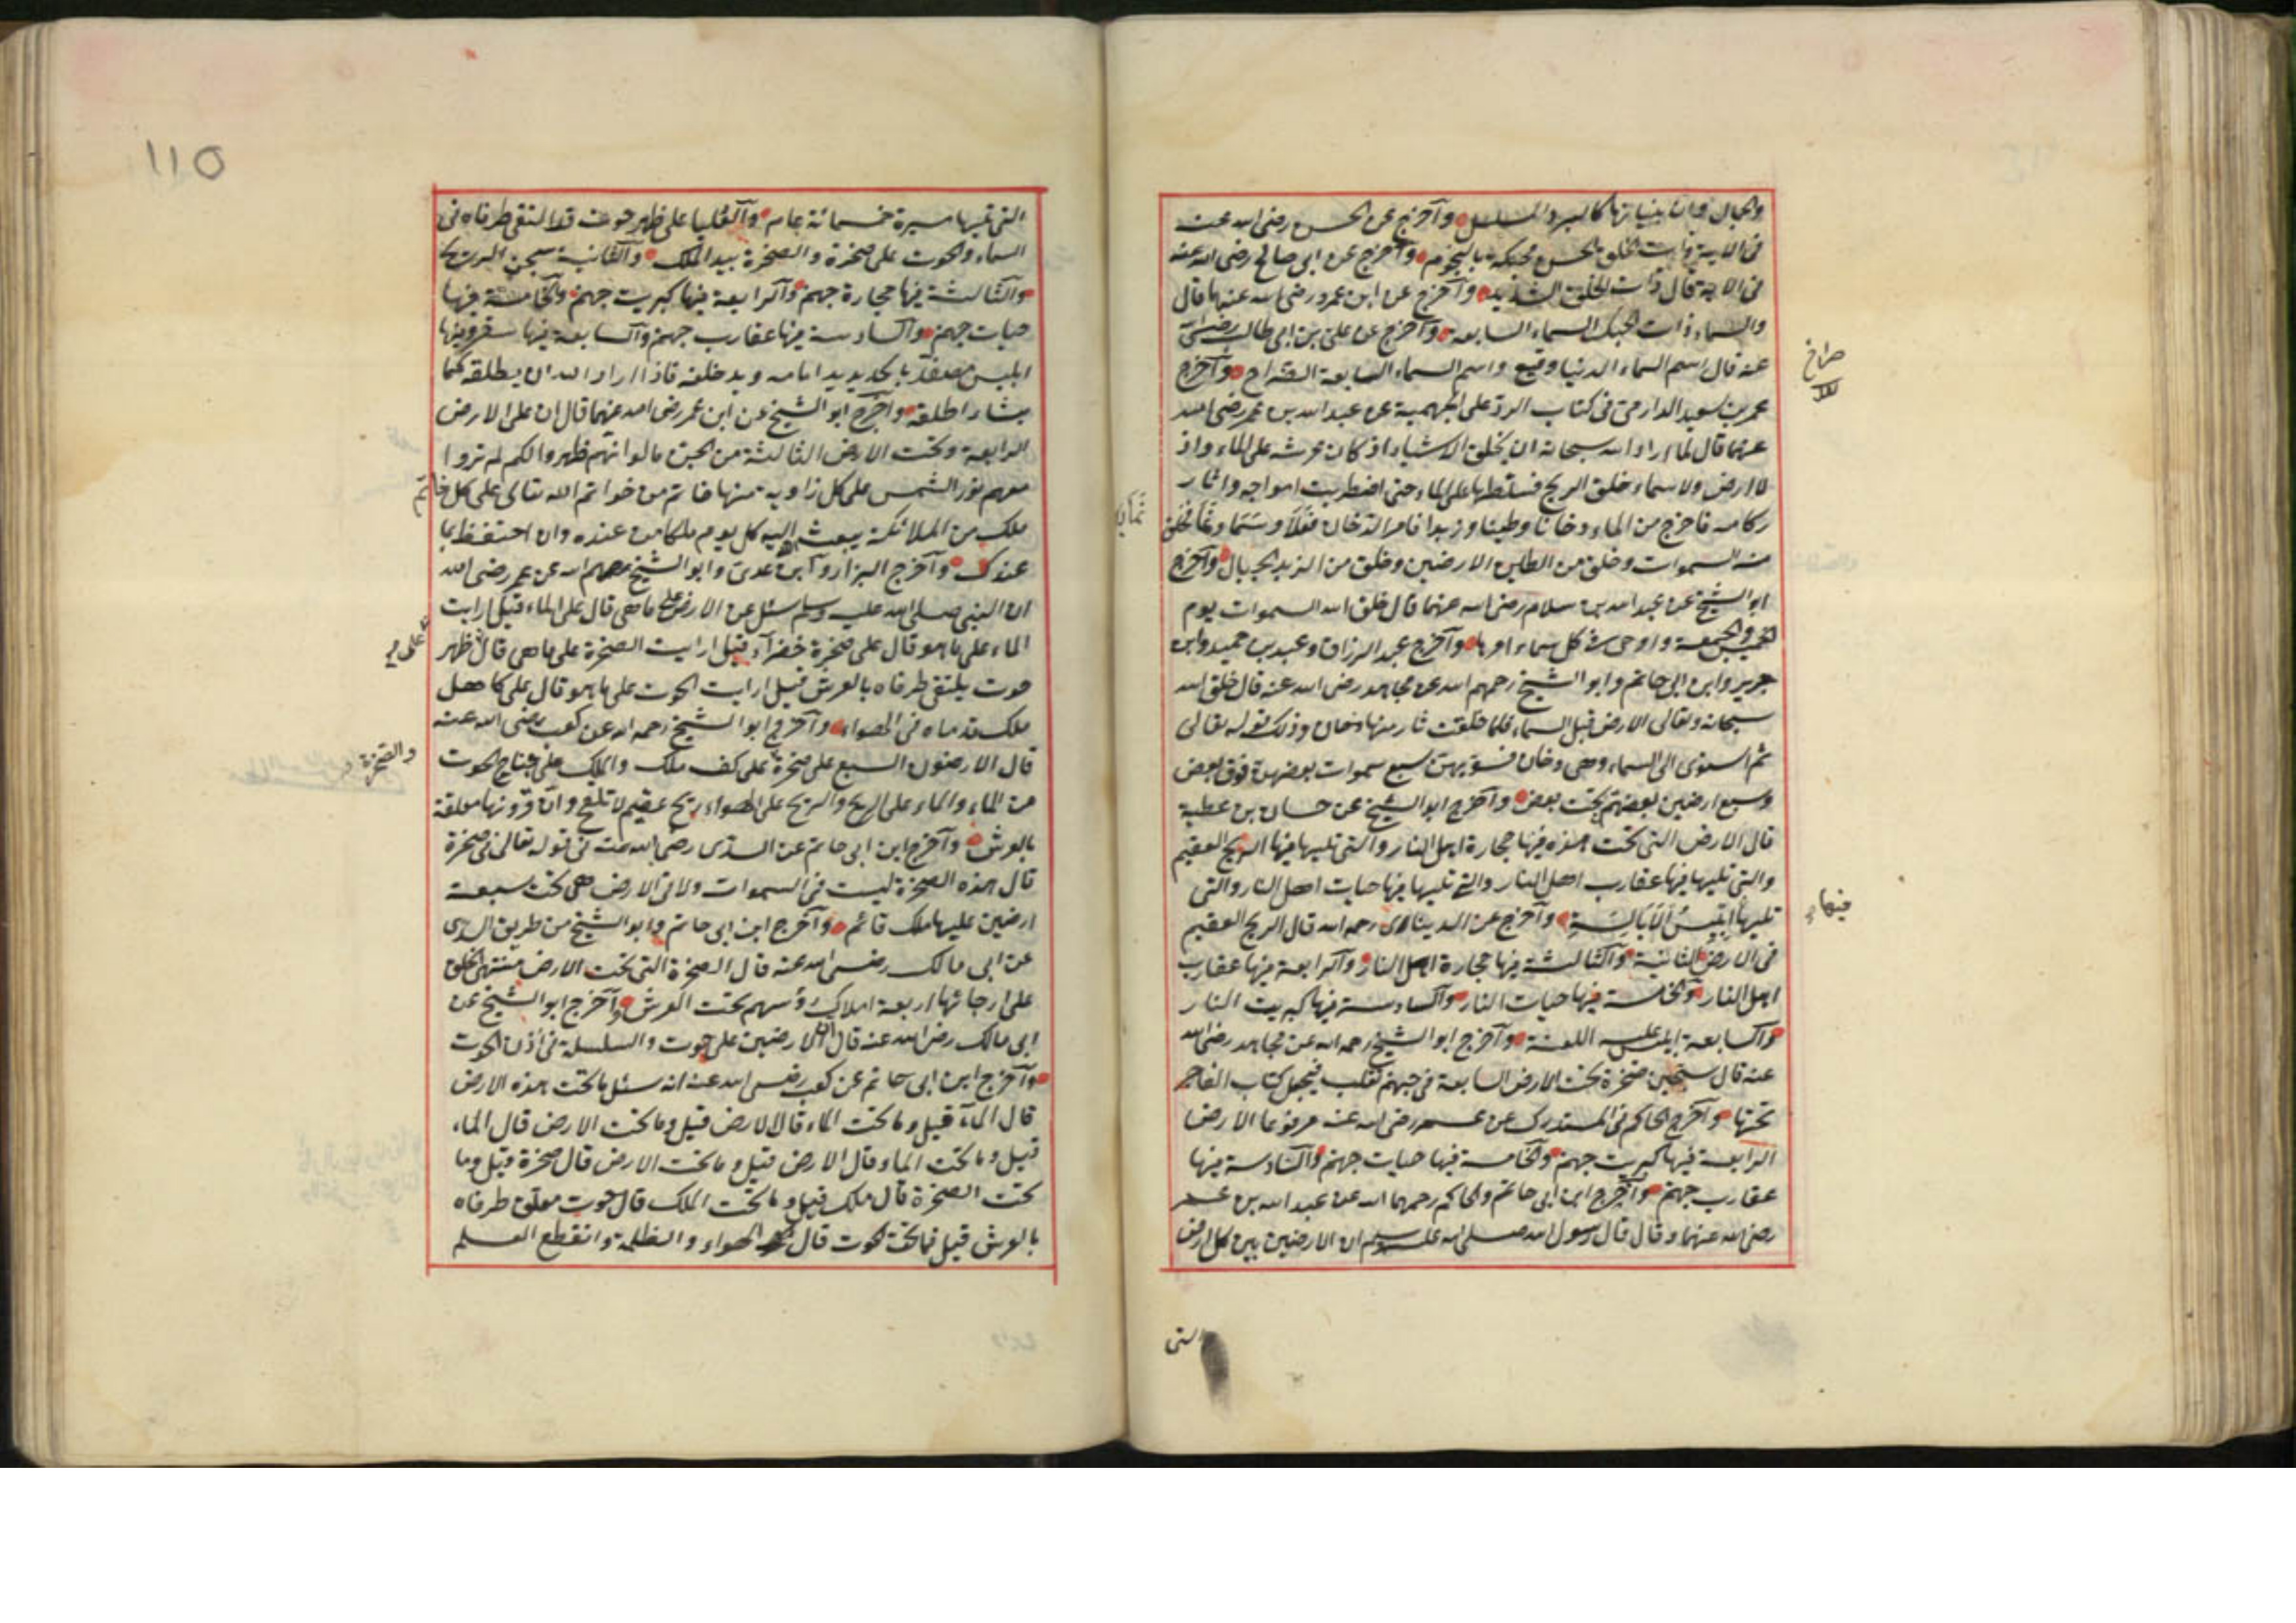 والجبال وان بنيانها كالبرد المسلسل وآخرج عن الحسن رضى الله عنه
فى الآية ذات الخلق الحسن محبكة بالنجوم وآخرج عن ابى صالح رضى الله عنه
فى الاية قال ذات الخلق الشديد وآخرج عن ابن عمرو رضى الله عنهما قال
والسماء ذات الحبك السماء السابعة وآخرج عن على بن ابى طالب رضى الله
عنه قال اسم السماء الدنيا رقيع واسم السماء السابعة الضراح وآخرج
صراخ
عمر بن سعيد الدارمى فى كتاب الرد على الجهمية عن عبد الله بن عمر رضى الله
عنهما قال لما اراد الله سبحانه ان يخلق الاشياء اذ كان عرشه على الماء واذ
لا ارض ولا سماء خلق الريح فسلطها على الماء حتى اضطربت امواجه واثار
ركامه فاخرج من الماء دخانا وطينا وزبدا فامر الدخان فعلا وسما ونما فخلق
منه السموات وخلق من الطين الارضين وخلق من الزبد الجبال وآخرج
ابو الشيخ عن عبد الله بن سلام رضى الله عنهما قال خلق الله السموات يوم
الخميس والجمعة واوحى فى كل سماء امرها وآخرج عبد الرزاق وعبد بن حميد وابن
جرير وابن ابى حاتم وابو الشيخ رحمهم الله عن مجاهد رضى الله عنه قال خلق الله
سبحانه وتعالى الارض قبل السماء فلما خلقت ثار منها دخان وذلك قوله تعالى
ثم استوى الى السماء وهى دخان فسويهن سبع سموات بعضهن فوق بعض
وسبع ارضين بعضهم تحت بعض وآخرج ابو الشيخ عن حسان بن عطية
قال الارض التى تحت هذه فيها حجارة اهل النار والتى تليها فيها الريح العقيم
والتى تليها فيها عقارب اهل النار والتى تليها فيها حيات اهل النار والتى
تليها ابليس الابالسة وآخرج عن الدينارى رحمه الله قال الريح العقيم
فيها
فى الارض الثانية وآلثالثة فيها حجارة اهل النار وآلرابعة فيها عقارب
اهل النار وآلخامسة فيها حيات النار وآلسادسة فيها كبريت النار
وآلسابعة ابليس عليه اللعنة وآخرج ابو الشيخ رحمه الله عن مجاهد رضى الله
عنه قال سجين صخرة تحت الارض السابعة فى جهنم تقلب فيجعل كتاب الفاجر
تحتها وآخرج الحاكم فى المستدرك عن عمر رضى الله عنه مرفوعا الارض
الرابعة فيها كبريت جهنم وآلخامسة فيها حيات جهنم وآلسادسة فيها
عقارب جهنم وآخرج ابن ابى حاتم والحاكم رحمهما الله عن عبد الله بن عمر
رضى الله عنهما وقال قال رسول الله صلى الله عليه وسلم ان الارضين بين كل ارض
التى
110
التى تليها مسيرة خمسمائة عام وآلعليا على ظهر حوت قد التقى طرفاه فى
السماء والحوت على صخرة والصخرة بيد الملك وآلثانية سجن الريح
وآلثالثة فيها حجارة جهنم وآلرابعة فيها كبريت جهنم وآلخامسة فيها
حيات جهنم وآلسادسة فيها عقارب جهنم وآلسابعة فيها سقر وفيها
ابليس مصفد بالحديد يد امامه ويد خلفه فاذا اراد الله ان يطلقه لما
يشاء اطلقه وآخرج ابو الشيخ عن ابن عمر رضى الله عنهما قال ان على الارض
الرابعة وتحت الارض الثالثة من الجن ما لو انهم ظهروا لكم لم تروا
معهم نور الشمس على كل زاوية منها خاتم من خواتم الله تعالى على كل خاتم
ملك من الملائكة يبعث اليه كل يوم ملكا من عنده وان احتفظ بما
عندك وآخرج البزار وآبن عدى وابو الشيخ رحمهم الله عن عمر رضى الله
ان النبى صلى الله عليه وسلم سئل عن الارض على ما هى قال على الماء قيل ارايت
الماء على ما هو قال على صخرة خضراء قيل ارايت الصخرة على ما هى قال ظهر
على
حوت يلتقى طرفاه بالعرش قيل ارايت الحوت على ما هو قال على كاهل
ملك قدماه فى الهواء وآخرج ابو الشيخ رحمه الله عن كعب رضى الله عنه
قال الارضون السبع على صخرة على كف ملك والملك على جناح الحوت
والصخرة
من الماء والماء على الريح والريح على الهواء ريح عقيم لا تلقح وان قرونها معلقة
بالعرش وآخرج ابن ابى حاتم عن السدى رضى الله عنه فى قوله تعالى فى صخرة
قال هذه الصخرة ليست فى السموات ولا فى الارض هى تحت سبعة
ارضين عليها ملك قائم وآخرج ابن ابى حاتم وابو الشيخ من طريق السدى
عن ابى مالك رضى الله عنه قال الصخرة التى تحت الارض منتهى الخلق
على ارجائها اربعة املاك رؤسهم تحت العرش وآخرج ابو الشيخ عن
ابى مالك رضى الله عنه قال ان الارضين على حوت والسلسلة فى اذن الحوت
وآخرج ابن ابى حاتم عن كعب رضى الله عنه انه سئل ما تحت هذه الارض
قال الماء قيل وما تحت الماء قال الارض قيل وما تحت الارض قال الماء
قيل وما تحت الماء قال الارض قيل وما تحت الارض قال صخرة وقيل وما
تحت الصخرة قال ملك قيل وما تحت الملك قال حوت معلق طرفاه
بالعرش قيل فما تحت الحوت قال الهواء والظلمة وانقطع العلم